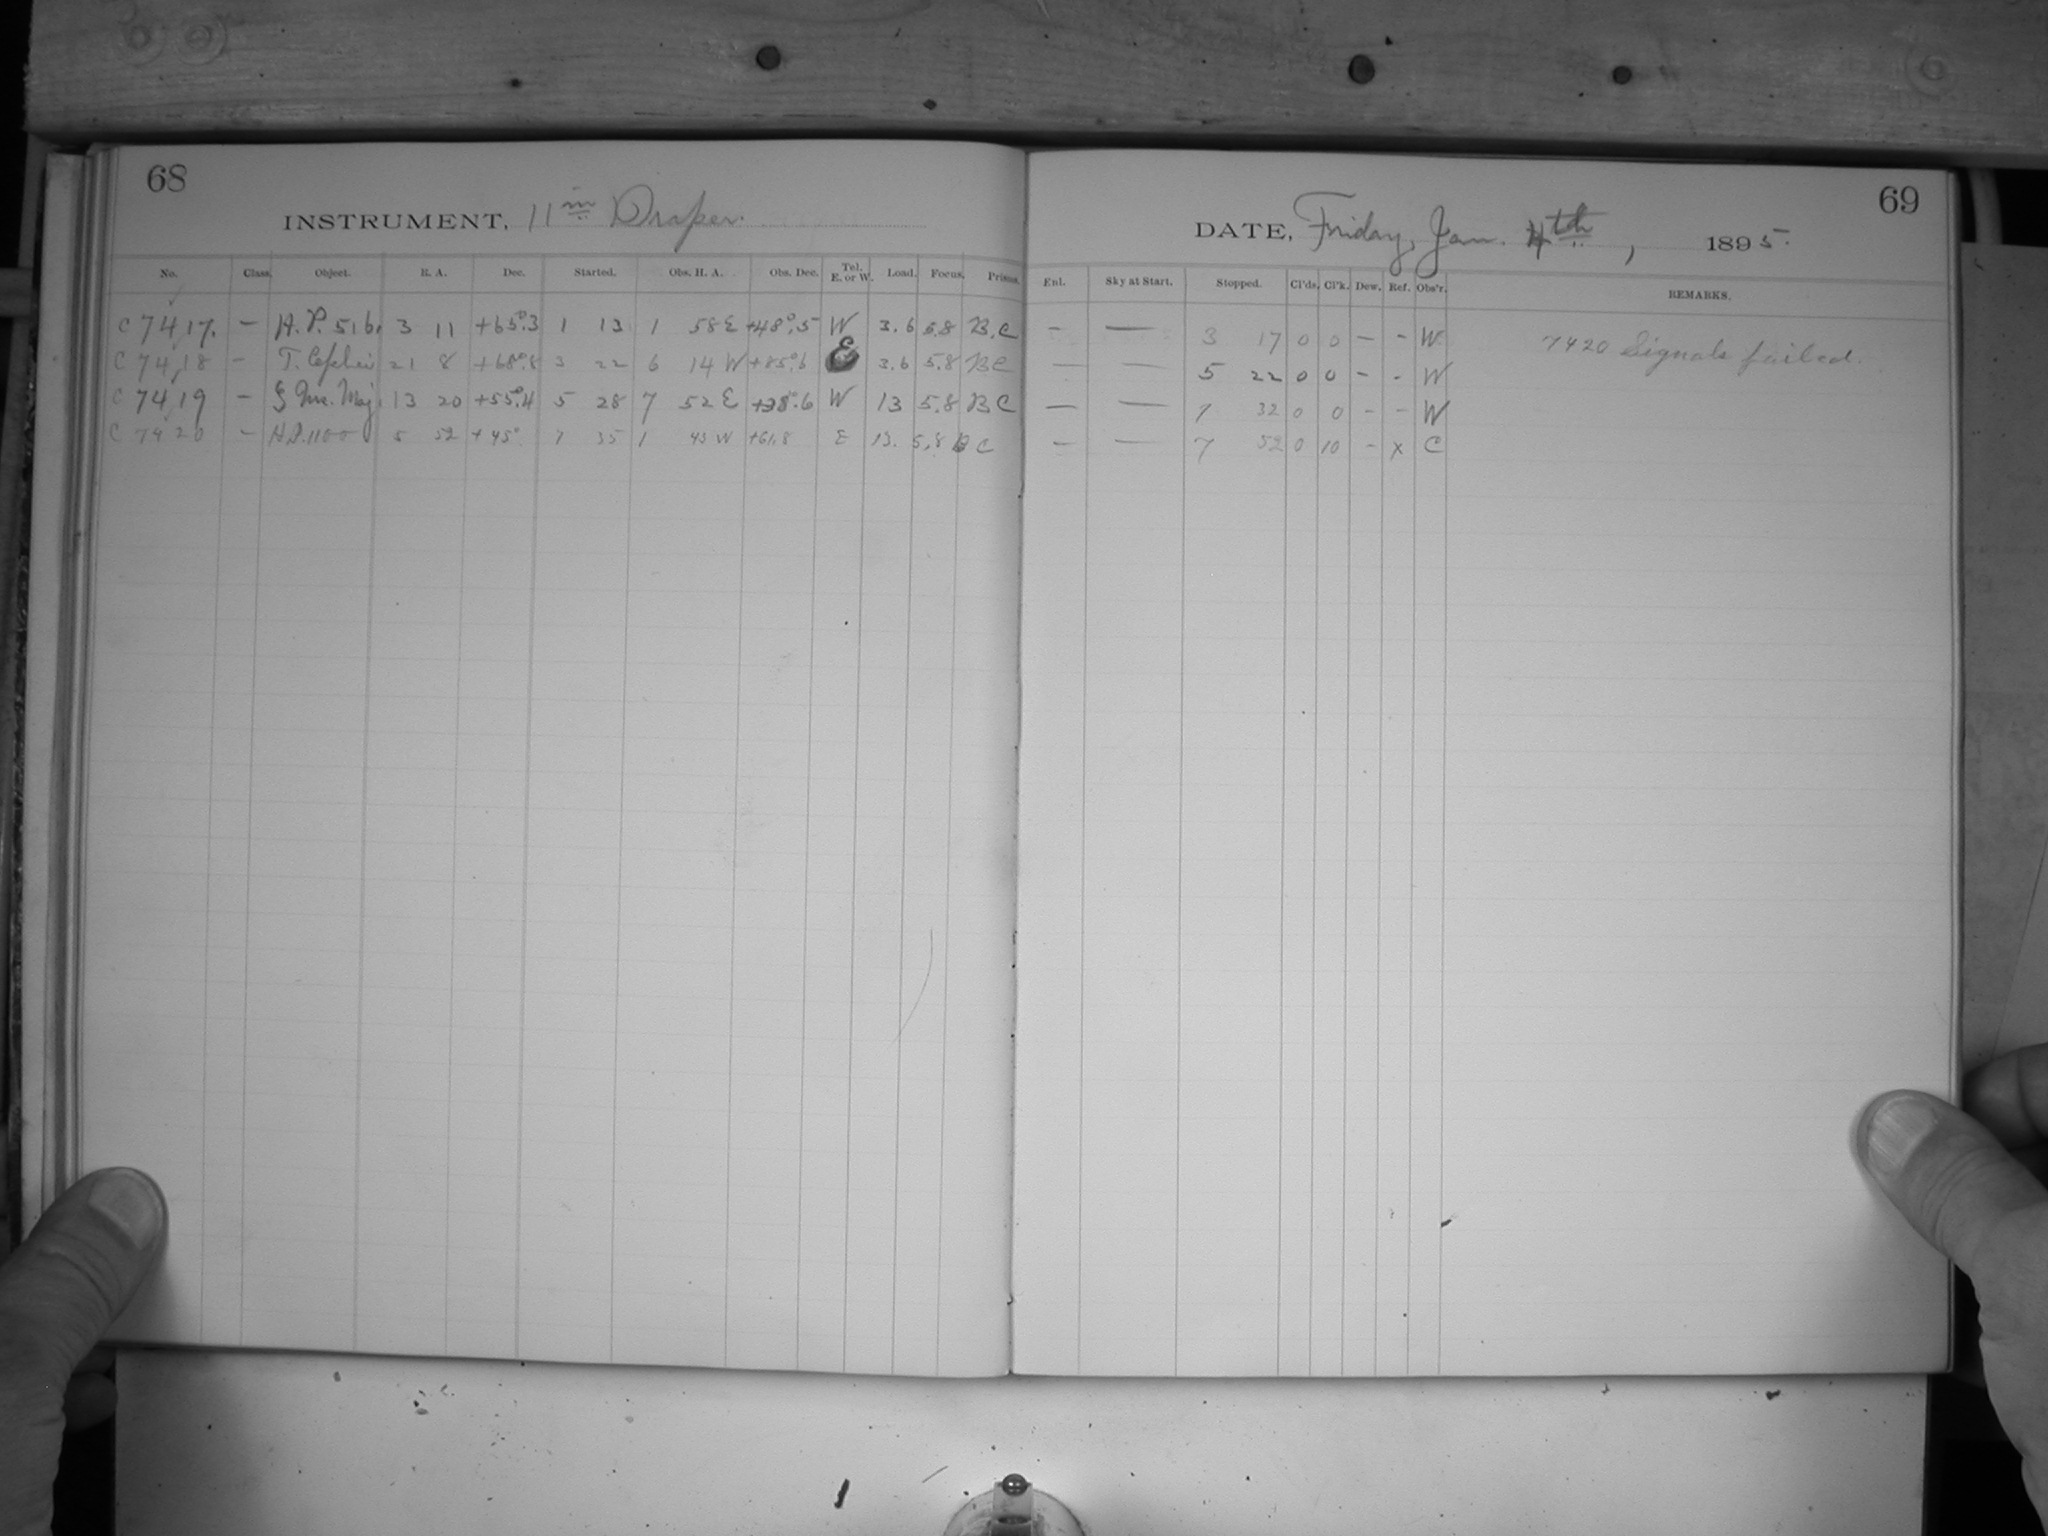 68
INSTRUMENT, 11 in Draper.
No. Class. Object. R. A. Dec. Started. Obs. H. A. Obs. Dec. Tel. E. or W. Load. Focus. Prisms.
C 7417. – H.P. 516. 3 11 +65°.3 1 13 1 58 E +48°.5 W 3.6 5.8 B.C
C 7418 – T. Cephei 21 8 +68°.8 3 22 6 14 W +85°.6 E 3.6 5.8 B C
C 7419 – ζ Urs. Maj. 13 20 +55°.4 5 28 7 52 E +38°.6 W 13 5.8 B C
C 7420 – H.P. 1100 5 52 +45° 7 35 1 43 W +61.8 E 13. 5.8 B C
69
DATE, Friday, Jan. 4th, 1895.
Enl. Sky at Start. Stopped. Cl'ds. Cl'k. Dew. Ref. Obs'r. REMARKS.
– — 3 17 0 0 – – W 7420 Signals failed.
— — 5 22 0 0 – – W
— — 7 32 0 0 – – W
– — 7 52 0 10 – x C